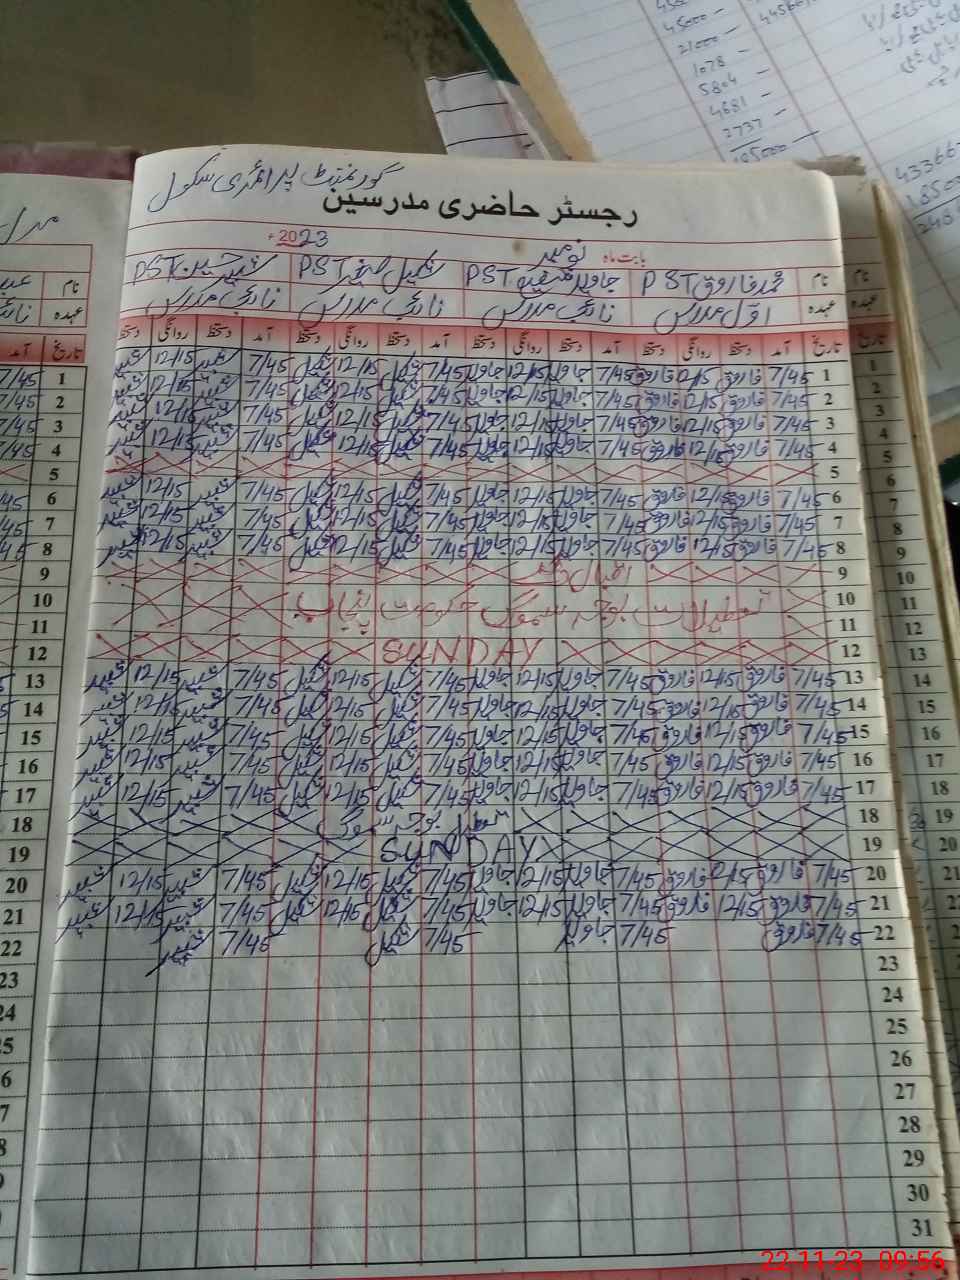 گورنمنٹ پرائمری سکول
رجسٹر حاضری مدرسین
بابت ماہ نومبر 2023ء
نام محمد فاروق PST جاوید PST شکیل PST شبیر حسین PST
عہدہ اول مدرس نائب مدرس نائب مدرس نائب مدرس
تاریخ آمد دستخط روانگی دستخط آمد دستخط روانگی دستخط آمد دستخط روانگی دستخط آمد دستخط روانگی دستخط
1 7/45 فاروق 12/15 فاروق 7/45 جاوید 12/15 جاوید 7/45 شکیل 12/15 شکیل 7/45 شبیر 12/15 شبیر
2 7/45 فاروق 12/15 فاروق 7/45 جاوید 12/15 جاوید 7/45 شکیل 12/15 شکیل 7/45 شبیر 12/15 شبیر
3 7/45 فاروق 12/15 فاروق 7/45 جاوید 12/15 جاوید 7/45 شکیل 12/15 شکیل 7/45 شبیر 12/15 شبیر
4 7/45 فاروق 12/15 فاروق 7/45 جاوید 12/15 جاوید 7/45 شکیل 12/15 شکیل 7/45 شبیر 12/15 شبیر
5
6 7/45 فاروق 12/15 فاروق 7/45 جاوید 12/15 جاوید 7/45 شکیل 12/15 شکیل 7/45 شبیر 12/15 شبیر
7 7/45 فاروق 12/15 فاروق 7/45 جاوید 12/15 جاوید 7/45 شکیل 12/15 شکیل 7/45 شبیر 12/15 شبیر
8 7/45 فاروق 12/15 فاروق 7/45 جاوید 12/15 جاوید 7/45 شکیل 12/15 شکیل 7/45 شبیر 12/15 شبیر
9 اقبال ڈے
10 تعطیلات بوجہ سموگ حکومت پنجاب
11
12 SUNDAY
13 7/45 فاروق 12/15 فاروق 7/45 جاوید 12/15 جاوید 7/45 شکیل 12/15 شکیل 7/45 شبیر 12/15 شبیر
14 7/45 فاروق 12/15 فاروق 7/45 جاوید 12/15 جاوید 7/45 شکیل 12/15 شکیل 7/45 شبیر 12/15 شبیر
15 7/45 فاروق 12/15 فاروق 7/45 جاوید 12/15 جاوید 7/45 شکیل 12/15 شکیل 7/45 شبیر 12/15 شبیر
16 7/45 فاروق 12/15 فاروق 7/45 جاوید 12/15 جاوید 7/45 شکیل 12/15 شکیل 7/45 شبیر 12/15 شبیر
17 7/45 فاروق 12/15 فاروق 7/45 جاوید 12/15 جاوید 7/45 شکیل 12/15 شکیل 7/45 شبیر 12/15 شبیر
18 تعطیل بوجہ سموگ
19 SUNDAY
20 7/45 فاروق 12/15 فاروق 7/45 جاوید 12/15 جاوید 7/45 شکیل 12/15 شکیل 7/45 شبیر 12/15 شبیر
21 7/45 فاروق 12/15 فاروق 7/45 جاوید 12/15 جاوید 7/45 شکیل 12/15 شکیل 7/45 شبیر 12/15 شبیر
22 7/45 فاروق 7/45 جاوید 7/45 شکیل 7/45 شبیر
23
24
25
26
27
28
29
30
31
45000
21000
1078
5804
4681
2737
22-11-23 09:56